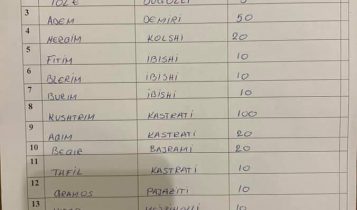 3 ADEM DEMIRI 50
4 HERGIM KOLSHI 20
5 FITIM IBISHI 10
6 BLERIM IBISHI 10
7 BURIM IBISHI 10
8 KUSHTRIM KASTRATI 100
9 AGIM KASTRATI 20
10 BEQIR BAJRAMI 20
11 THFIL KASTRATI 10
12 GRAMOS PAJAZITI 10
13